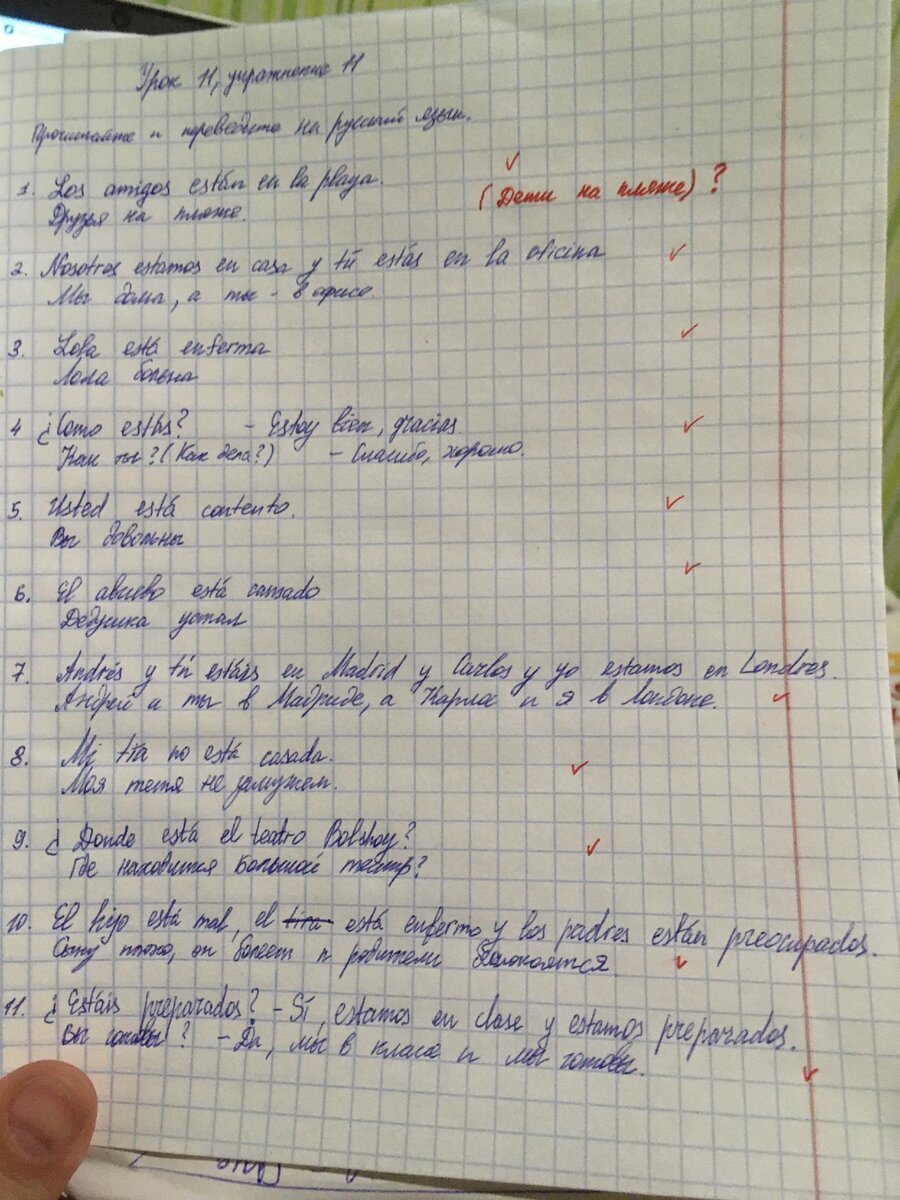 Урок 11, упражнение 11
Прочитайте и переведите на русский язык.
1. Los amigos están en la playa.
Друзья на пляже.
(Дети на пляже) ?
2. Nosotros estamos en casa y tú estás en la oficina
Мы дома, а ты - в офисе.
3. Lola está enferma
Лола больна
4 ¿Como estás? - Estoy bien, gracias.
Как ты? (Как дела?) - Спасибо, хорошо.
5. Usted está contento.
Вы довольны
6. El abuelo está cansado
Дедушка устал
7. Andrés y tú estáis en Madrid y Carlos y yo estamos en Londres.
Андрей и ты в Мадриде, а Карлос и я в Лондоне.
8. Mi tía no está casada.
Моя тетя не замужем.
9. ¿Donde está el teatro Bolshoy?
Где находится Большой театр?
10. El hijo está mal, el está enfermo y los padres están preocupados.
Сыну плохо, он болеет и родители беспокоятся.
11. ¿Estáis preparados? - Sí, estamos en clase y estamos preparados.
Вы готовы? - Да, мы в классе и мы готовы.